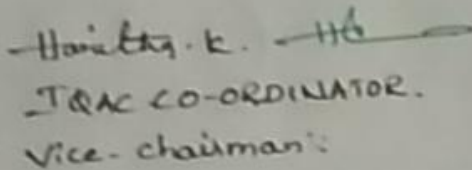 Haritha. K.
IQAC CO-ORDINATOR.
Vice-chairman: